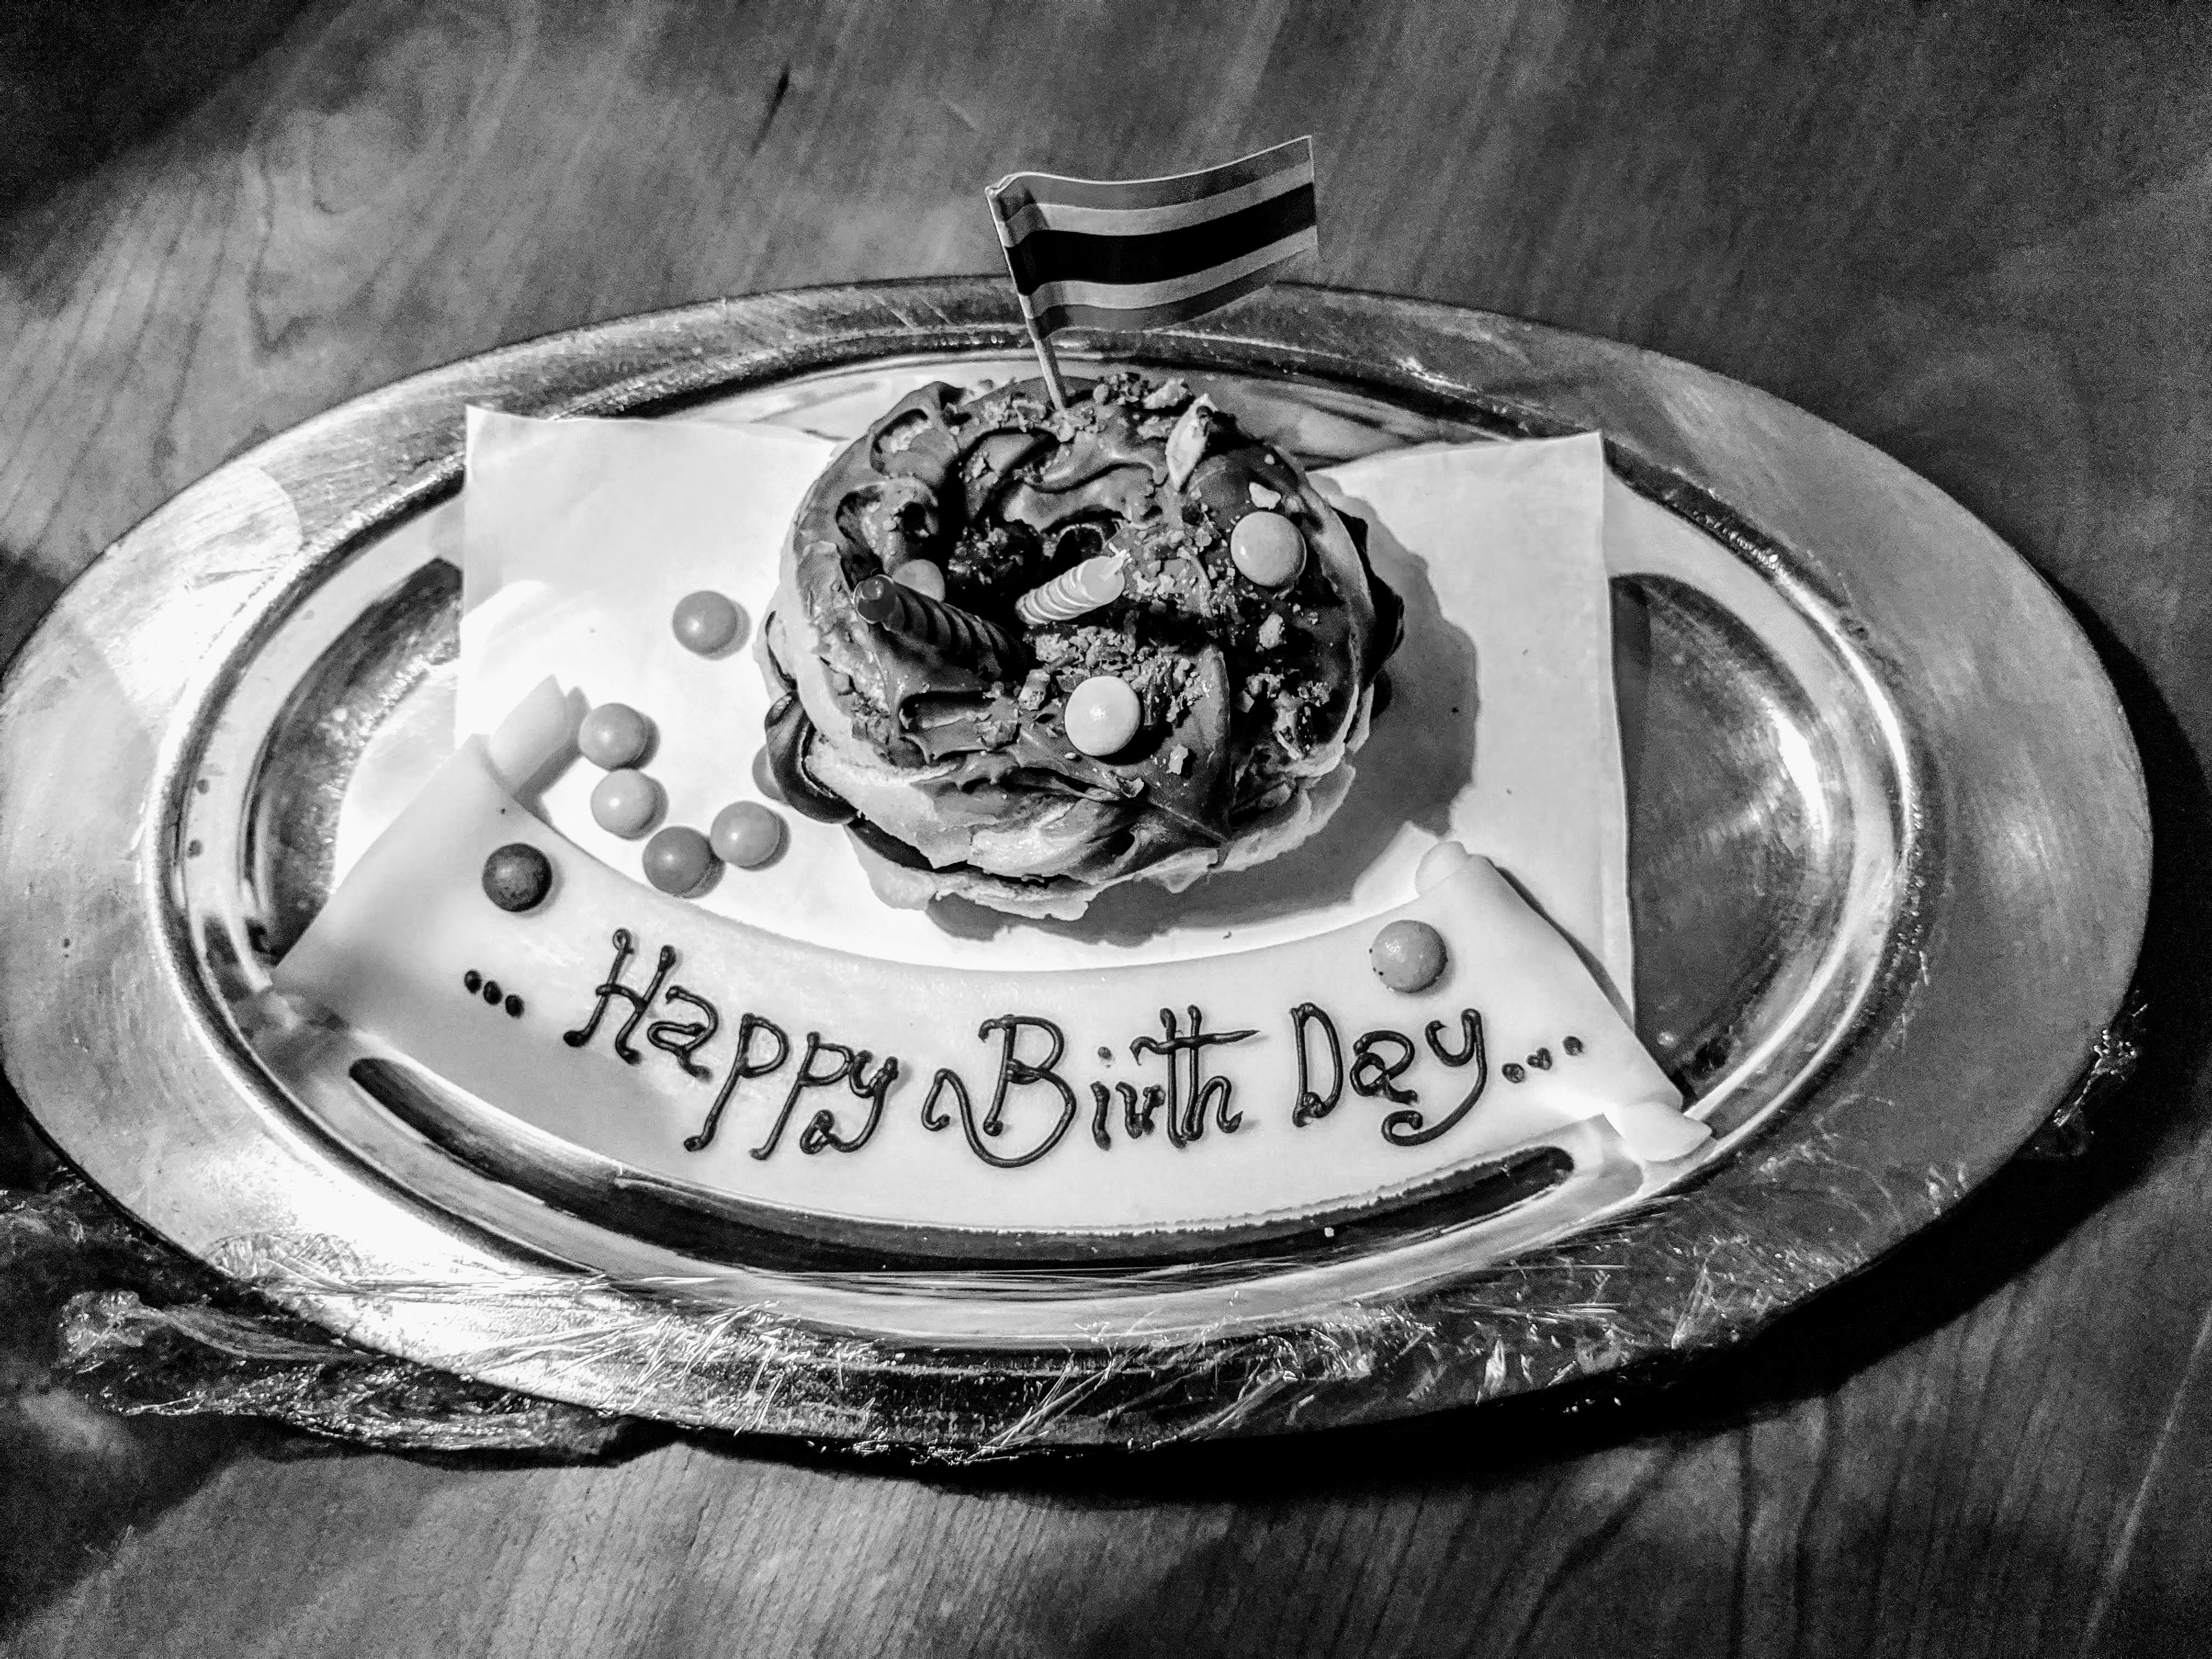 ... Happy Birth Day ...